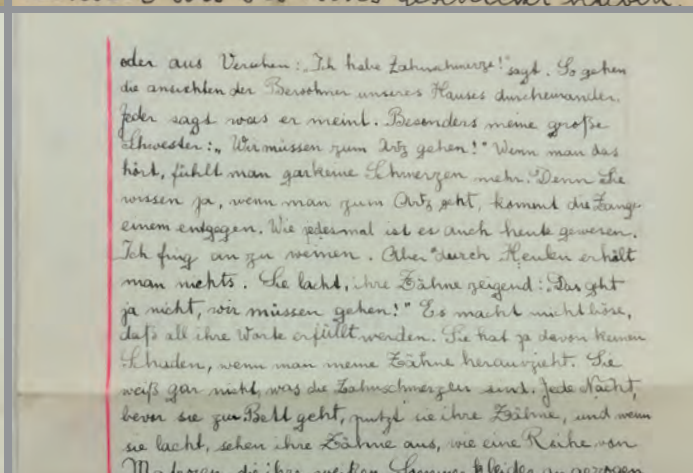 geschrieben haben.
oder aus Versehen: „Ich habe Zahnschmerze!" sagt. So gehen
die ansichten der Bewohner unseres Hauses durcheinander.
Jeder sagt was er meint. Besonders meine große
Schwester: „Wir müssen zum Artz gehen!" Wenn man das
hört, fühlt man garkeine Schmerzen mehr. Denn Sie
wissen ja, wenn man zum Artz geht, kommt die Zange
einem entgegen. Wie jedesmal ist es auch heute gewesen.
Ich fing an zu weinen. Aber durch Heulen erhält
man nichts. Sie lacht, ihre Zähne zeigend: „Das geht
ja nicht, wir müssen gehen!" Es macht mich böse,
daß all ihre Worte erfüllt werden. Sie hat ja davon keinen
Schaden, wenn man meine Zähne herauszieht. Sie
weiß gar nicht, was die Zahnschmerzen sind. Jede Nacht,
bevor sie zur Bett geht, putzt sie ihre Zähne, und wenn
sie lacht, sehen ihre Zähne aus, wie eine Reihe von
Matrosen, die ihre weißen Sommerkleider angezogen